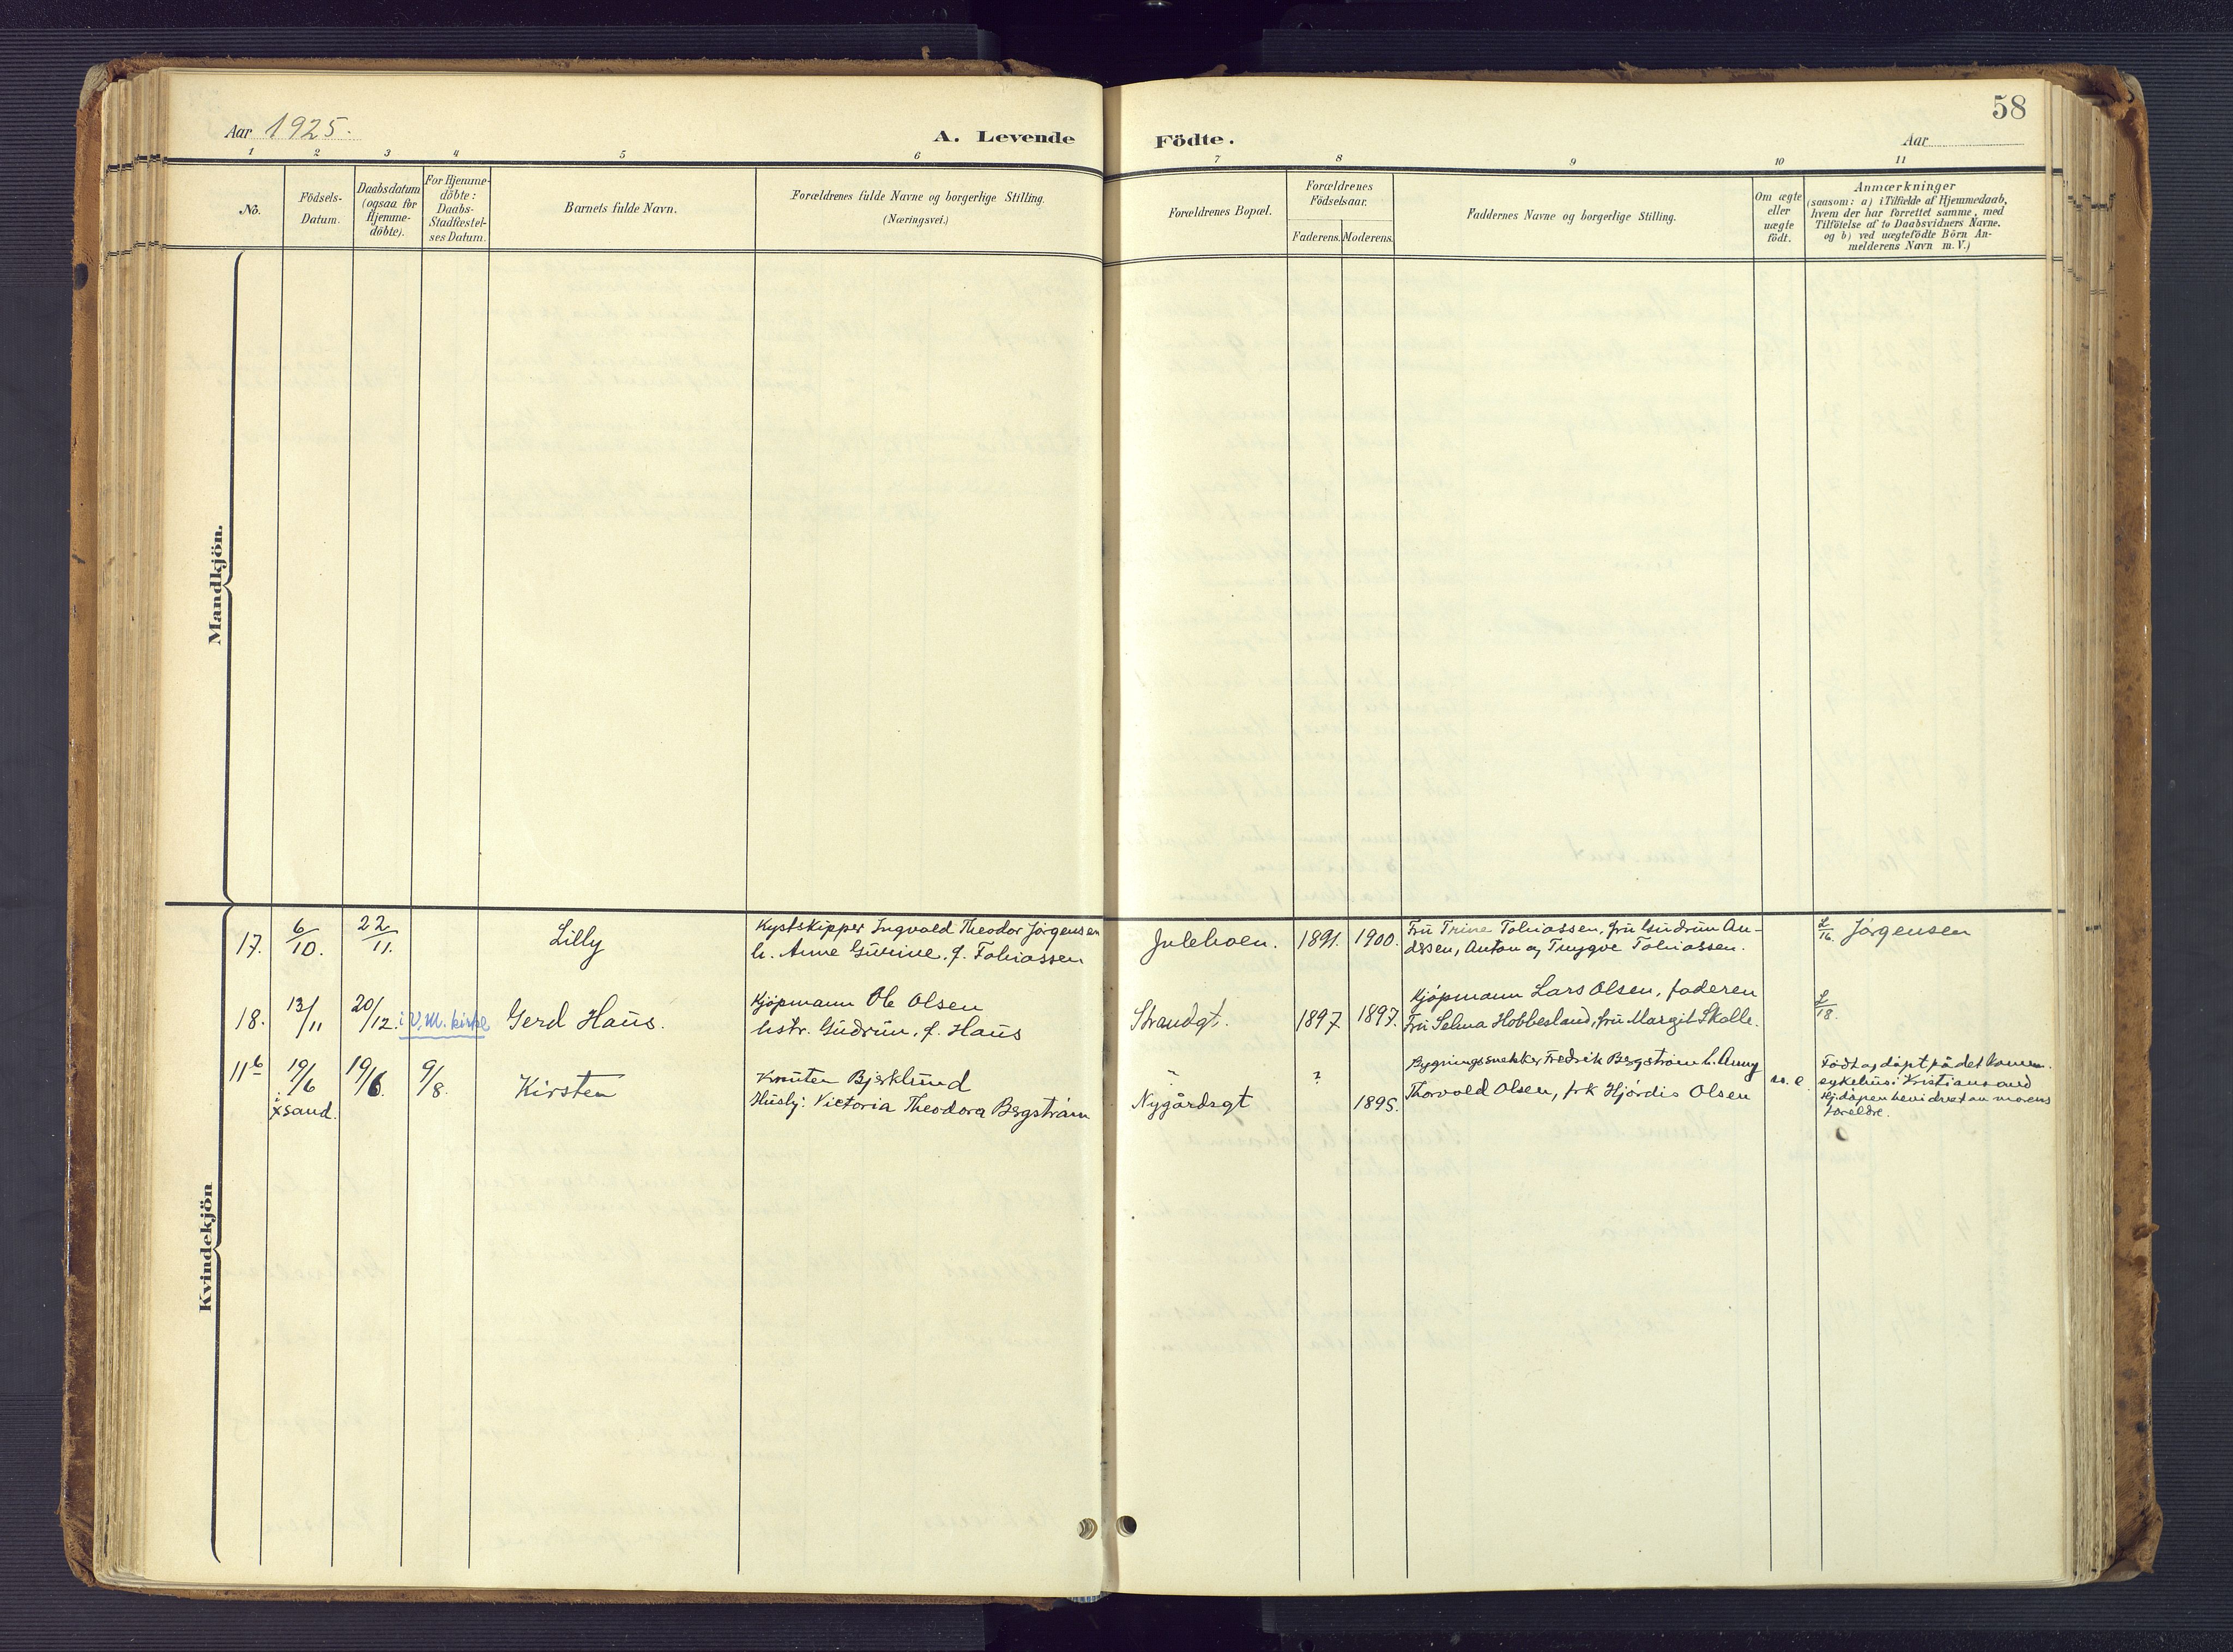 58
Aar 1925.
A. Levende Födte.
Aar
1 2 3 4 5 6 7 8 9 10 11
No.
Födsels-
Datum.
Daabsdatum
(ogsaa for
Hjemme-
döbte).
For Hjemme-
döbte:
Daabs-
Stadfæstel-
ses Datum.
Barnets fulde Navn.
Forældrenes fulde Navne og borgerlige Stilling.
(Næringsvei.)
Forældrenes Bopæl.
Forældrenes
Födselsaar.
Faderens. Moderens.
Faddernes Navne og borgerlige Stilling.
Om ægte
eller
uægte
födt.
Anmærkninger
(saasom: a) i Tilfælde af Hjemmedaab,
hvem der har forrettet samme, med
Tilföielse af to Daabsvidners Navne.
og b) ved uægtefödte Börn An-
melderens Navn m. V.)
Mandkjön.
Kvindekjön
17. 6/10. 22/11. Lilly
Kystskipper Ingvald Theodor Jørgensen
h. Anne f. Tobiassen
1891. 1900.
Fru Trine Tobiassen, fru Gudrun An-
dssen, Anton og Trygve Tobiassen.
L/16. Jørgensen
18. 13/11 20/12. i V.M. kirke Gerd Haus.
Kjøpmann Ole Olsen
hstr. Gudrun, f. Haus
Strandgt. 1897 1897.
Kjøpmann Lars Olsen, faderen
Fru Selma Hobbesland, fru Margit Skolle.
L/18.
11b 19/6 19/6. 9/8. Kirsten
i Xsand.
Knuten Bjerklund
Husbj: Victoria Theodora Bergstrøm
Nygårdsgt ? 1895.
Bygningssnekker Fredrik Bergstrøm h. Anny
Thorvald Olsen, frk Hjørdis Olsen
u. e.
Født og døpt på det komm.
sykehus i Kristiansand
Hj.dåpen bevidnet av morens
foreldre.